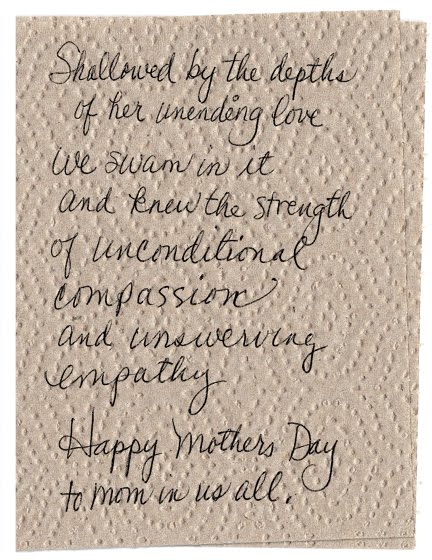 Shallowed by the depths
of her unending love
we swam in it
and knew the strength
of unconditional
compassion
and unswerving
empathy
Happy Mothers Day
to mom in us all.